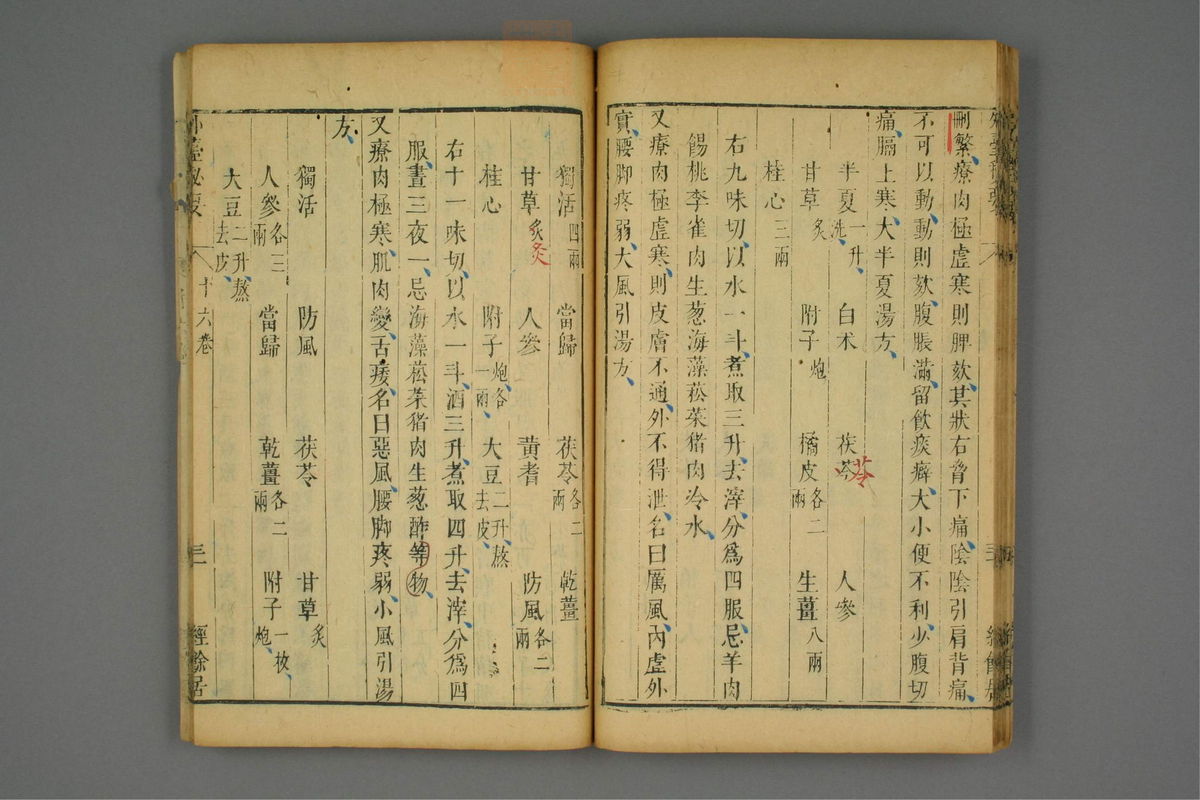 刪繁療肉極虛寒則脾欬其狀右脅下痛陰陰引肩背痛
不可以動動則欬腹脹滿留飲痰癖大小便不利少腹切
痛膈上寒大半夏湯方
半夏一升洗 白朮 茯苓 苓 人參
甘草炙 附子炮 橘皮各二兩 生薑八兩
桂心三兩
右九味切以水一斗煮取三升去滓分為四服忌羊肉
餳桃李雀肉生葱海藻菘菜豬肉冷水
又療肉極虛寒則皮膚不通外不得泄名曰厲風內虛外
實腰脚疼弱大風引湯方
獨活四兩 當歸 茯苓各二兩 乾薑
甘草炙 炙 人參 黃耆 防風各二兩
桂心 附子炮各一兩 大豆二升熬去皮
右十一味切以水一斗酒三升煮取四升去滓分為四
服晝三夜一忌海藻菘菜豬肉生葱酢等物
又療肉極寒肌肉變舌痿名曰惡風腰脚疼弱小風引湯
方
獨活 防風 茯苓 甘草炙
人參各三兩 當歸 乾薑各二兩 附子一枚炮
大豆二升熬去皮
外臺秘要 十六卷 三 經餘居